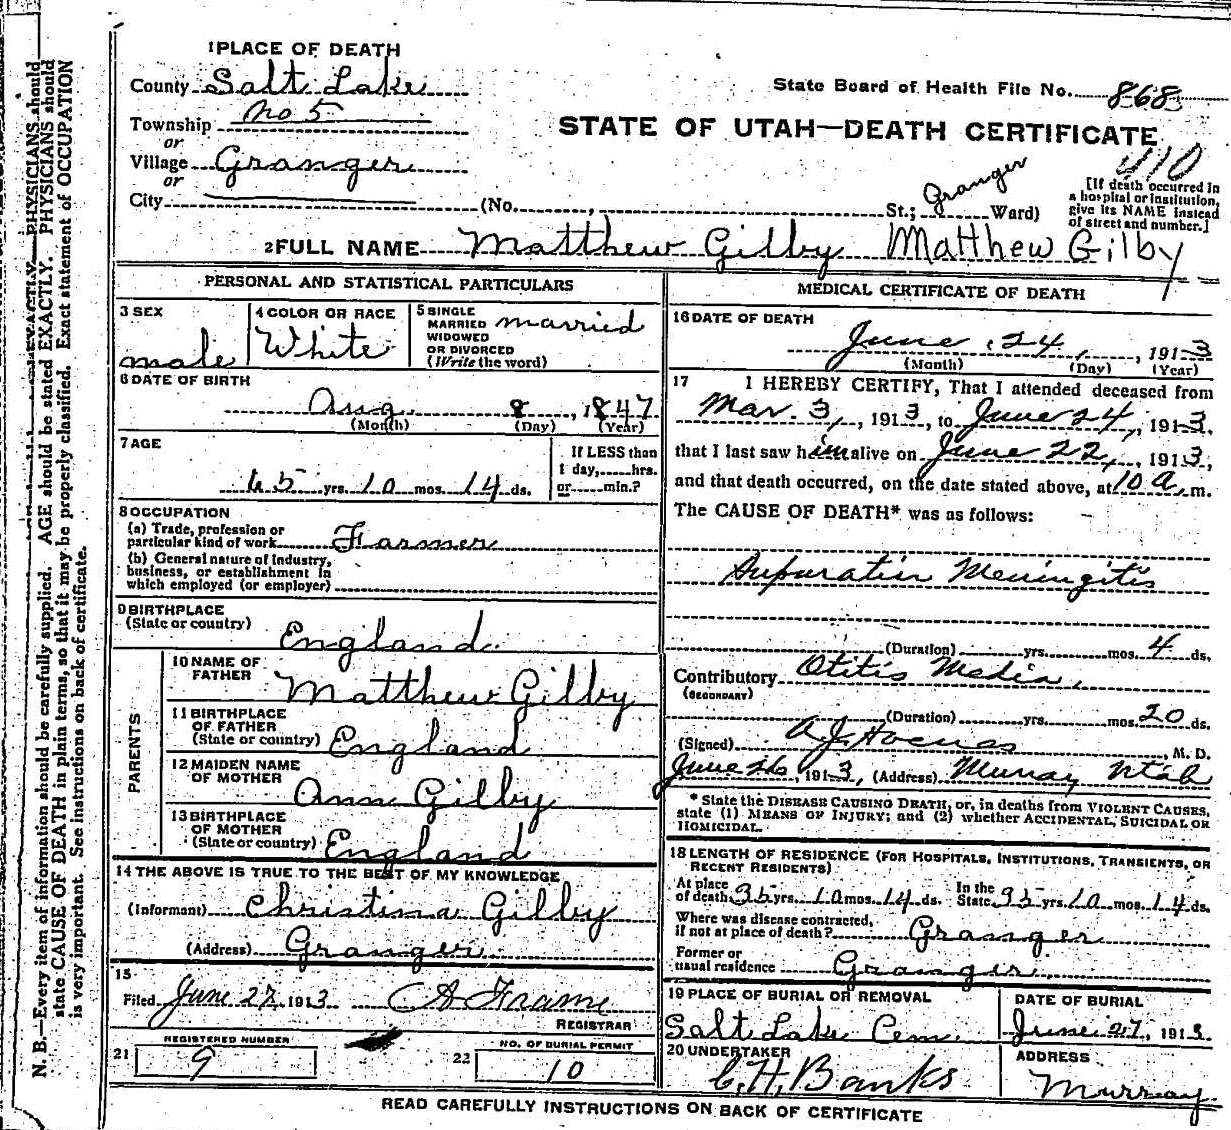 1 PLACE OF DEATH
County Salt Lake
State Board of Health File No. 868
Township No 5
STATE OF UTAH—DEATH CERTIFICATE
410
or
Village Granger
or
City (No. , St.; Granger Ward)
[If death occurred in a hospital or institution, give its NAME instead of street and number.]
2 FULL NAME Matthew Gilby Matthew Gilby
PERSONAL AND STATISTICAL PARTICULARS
3 SEX
male
4 COLOR OR RACE
White
5 SINGLE MARRIED WIDOWED OR DIVORCED (Write the word) married
6 DATE OF BIRTH
Aug. 8, 1847
(Month) (Day) (Year)
7 AGE
65 yrs. 10 mos. 14 ds.
If LESS than 1 day, hrs. or min.?
8 OCCUPATION
(a) Trade, profession or particular kind of work Farmer
(b) General nature of Industry, business, or establishment in which employed (or employer)
9 BIRTHPLACE
(State or country) England
PARENTS
10 NAME OF FATHER Matthew Gilby
11 BIRTHPLACE OF FATHER (State or country) England
12 MAIDEN NAME OF MOTHER Ann Gilby
13 BIRTHPLACE OF MOTHER (State or country) England
14 THE ABOVE IS TRUE TO THE BEST OF MY KNOWLEDGE
(Informant) Christina Gilby
(Address) Granger
15
Filed June 27, 1913 A Frame
REGISTRAR
21 REGISTERED NUMBER
9
22 NO. OF BURIAL PERMIT
10
MEDICAL CERTIFICATE OF DEATH
16 DATE OF DEATH
June 24, 1913
(Month) (Day) (Year)
17 I HEREBY CERTIFY, That I attended deceased from
Mar. 3, 1913, to June 24, 1913.
that I last saw him alive on June 22, 1913,
and that death occurred, on the date stated above, at 10 a. m.
The CAUSE OF DEATH* was as follows:
Meningitis
(Duration) yrs. mos. 4 ds.
Contributory Otitis Media
(SECONDARY)
(Duration) yrs. mos. 20 ds.
(Signed) A. J., M. D.
June 26, 1913, (Address) Murray Utah
* State the DISEASE CAUSING DEATH, or, in deaths from VIOLENT CAUSES, state (1) MEANS OF INJURY; and (2) whether ACCIDENTAL, SUICIDAL OR HOMICIDAL.
18 LENGTH OF RESIDENCE (FOR HOSPITALS, INSTITUTIONS, TRANSIENTS, OR RECENT RESIDENTS)
At place of death 35 yrs. 10 mos. 14 ds. In the State 35 yrs. 10 mos. 14 ds.
Where was disease contracted, if not at place of death? Granger
Former or usual residence Granger
19 PLACE OF BURIAL OR REMOVAL
Salt Lake Cem.
DATE OF BURIAL
June 27, 1913
20 UNDERTAKER
C. H. Banks
ADDRESS
Murray
READ CAREFULLY INSTRUCTIONS ON BACK OF CERTIFICATE
N. B.—Every item of information should be carefully supplied. AGE should be stated EXACTLY. PHYSICIANS should
state CAUSE OF DEATH in plain terms, so that it may be properly classified. Exact statement of OCCUPATION
is very important. See instructions on back of certificate.